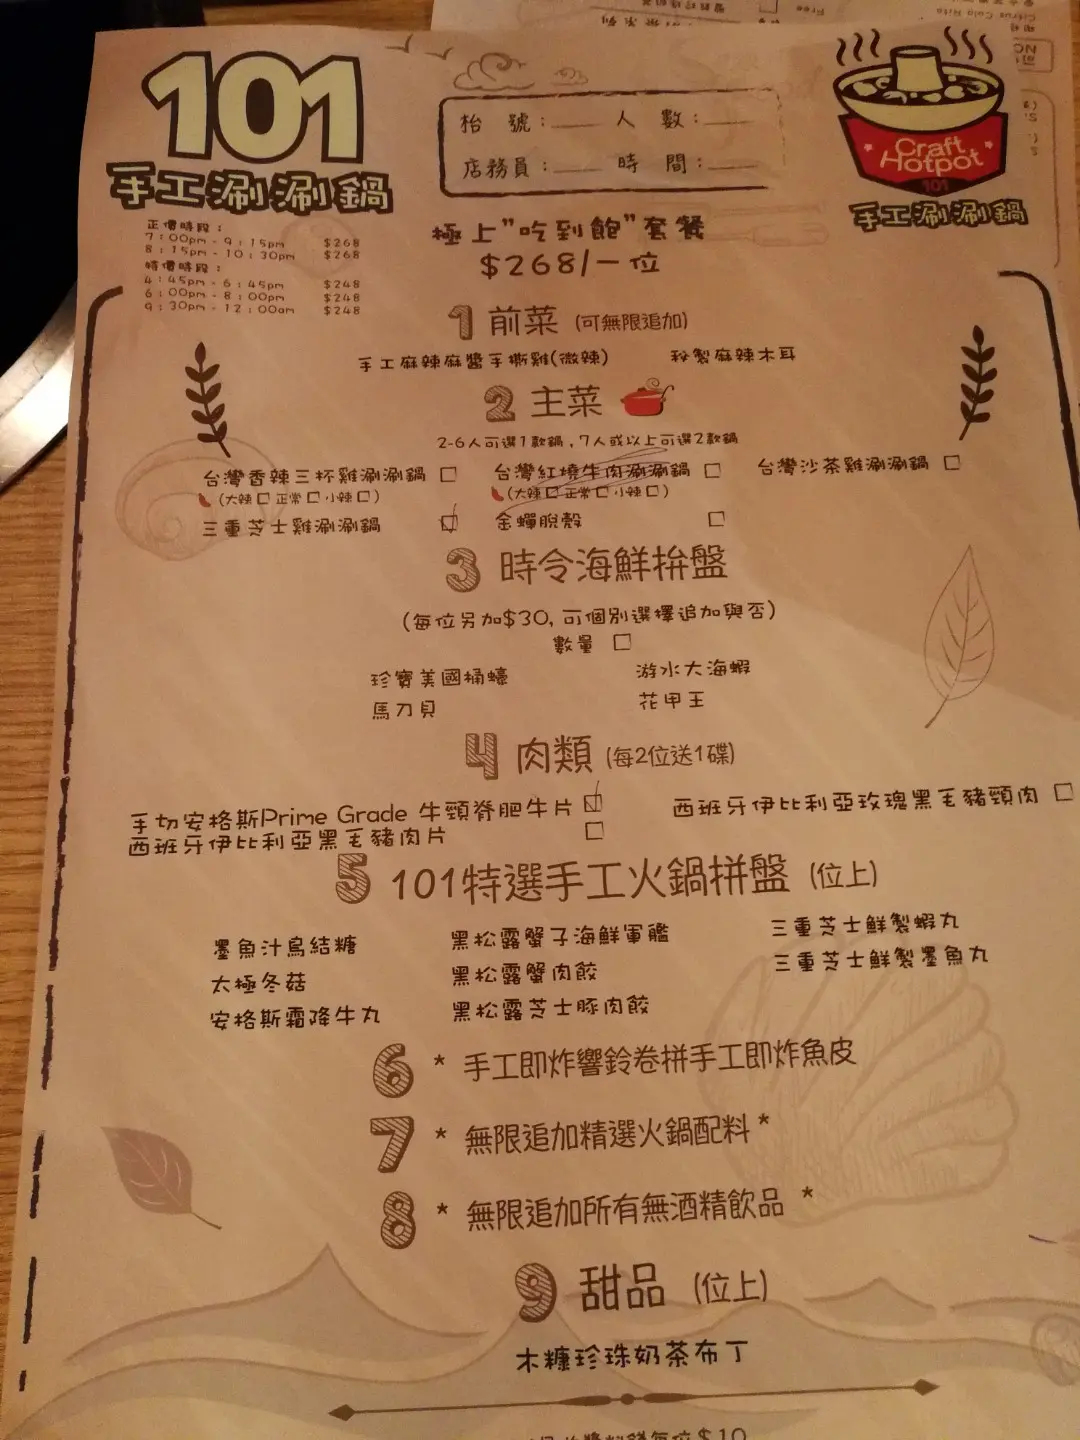 101
手工涮涮鍋
枱 號：____ 人 數：____
店務員：____ 時 間：____
Craft
Hotpot
101
手工涮涮鍋
正價時段：
7：00pm - 9：15pm $268
8：15pm - 10：30pm $268
特價時段：
4：45pm - 6：45pm $248
6：00pm - 8：00pm $248
9：30pm - 12：00am $248
極上"吃到飽"套餐
$268/一位
1 前菜 (可無限追加)
手工麻辣麻醬手撕雞(微辣) 秘製麻辣木耳
2 主菜
2-6人可選1款鍋，7人或以上可選2款鍋
台灣香辣三杯雞涮涮鍋 □ 台灣紅燒牛肉涮涮鍋 □ 台灣沙茶雞涮涮鍋 □
(大辣□ 正常□ 小辣□) (大辣□ 正常□ 小辣□)
三重芝士雞涮涮鍋 ☑ 金蟬脫殼 □
3 時令海鮮拚盤
(每位另加$30, 可個別選擇追加與否)
數量 □
珍寶美國桶蠔 游水大海蝦
馬刀貝 花甲王
4 肉類 (每2位送1碟)
手切安格斯Prime Grade 牛頸脊肥牛片 ☑ 西班牙伊比利亞玫瑰黑毛豬頸肉 □
西班牙伊比利亞黑毛豬肉片 □
5 101特選手工火鍋拼盤 (位上)
墨魚汁烏結糖 黑松露蟹子海鮮軍艦 三重芝士鮮製蝦丸
太極冬菇 黑松露蟹肉餃 三重芝士鮮製墨魚丸
安格斯霜降牛丸 黑松露芝士豚肉餃
6 * 手工即炸響鈴卷拼手工即炸魚皮
7 * 無限追加精選火鍋配料 *
8 * 無限追加所有無酒精飲品 *
9 甜品 (位上)
木糠珍珠奶茶布丁
每位$10